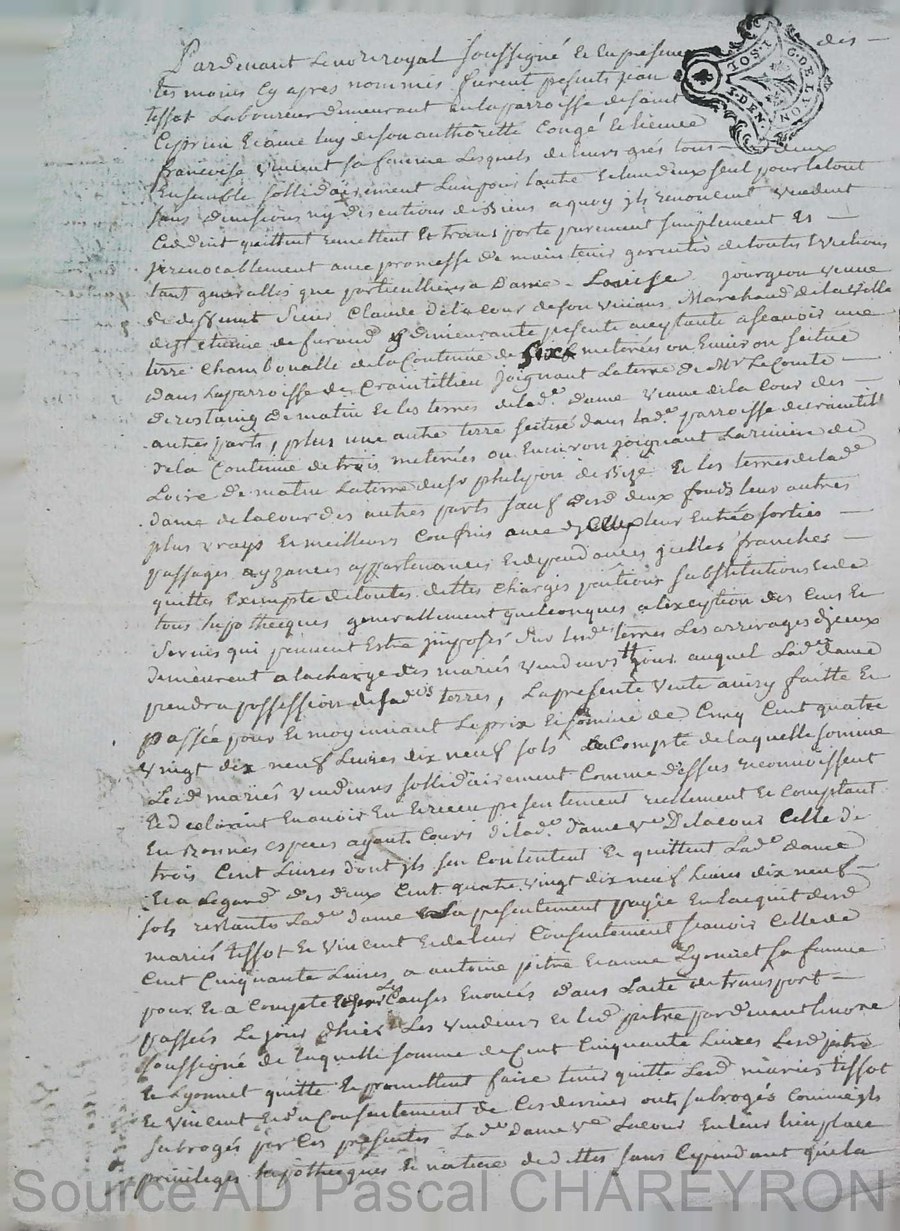 Pardevant Le no.re royal soussigné et en presence des
tesmoins cy apres nommés furent presents jean
tissot Laboureur demeurant en la parroisse de saint
Ciprien et anne luy de son authoritté Congé et licence
francoise vincent sa femme Lesquels de leurs grés tous deux
Ensemble sollidairement Lun pour lautre et lun deux seul pour le tout
sans divisions ny discutions de Biens a quoy ils renoncent vendent
Cedent quittent remettent et transporte purement simplement et
jrrevocablement avec promesse de maintenir garentir de toutes Evictions
tant generalles que particullieres a Dame Louise jourjeon veuve
de deffunt sieur Claude Delacour de son vivant Marchand de la ville
de st etienne de furand y demeurante presente aceptante a scavoir une
terre Chambonalle de la Contenue de six meterées ou Environ scitué
dans la parroisse de Craintillieu joignant La terre de Mr Le Comte
de rostaing de matin et les terres de lad.e dame veuve de la Cour des
autres parts, plus une autre terre scituée dans lad.e parroisse de Craintill.
de la Contenue de trois meterées ou Environ joignant La riviere de
Loire de matin La terre du sr philipon de Bizé Et les terres de lad.e
dame de lacour des autres parts sauf desd. deux fonds leur autres
plus vrays et meilleurs Confins avec leur Entrées sorties
passages ayzances appartenances et dependances jcelles franches
quittes Exempte de toutes dettes Charges pentions substitutions et de
tous hipotheques generallement quelconques a lexception des Cens et
servis qui peuvent Estre jmposés sur lesd.es terres Les arrerages djceux
demeurent a la charge des mariés vendeurs jour auquel Lad.e dame
prendra possession desd.es terres, La presente vente ainsy faitte et
passée pour et moyennant Le prix et somme de Cinq Cent quatre
vingt dix neuf Livres dix neuf sols a Compte de laquelle somme
Lesd. mariés vendeurs sollidairement Comme dessus reconnoissent
Et declarent En avoir Eu Et receu presentement reellement et Comptant
En Bonnes especes ayant Cours de lad.e dame v.e Delacour Celle de
trois Cent Livres dont ils sen Contentent Et quittent Lad.e dame
Et a Legard des deux Cent quatre vingt dix neuf Livres dix neuf
sols restants Lad.e dame a presentement payée En lacquit desd.
mariés tissot et vincent Et de leur Consentement scavoir Celle de
Cent Cinquante Livres a antoine pitre et anne Lyonnet sa femme
pour Et a Compte Les Causes Enoncés dans Lacte de transport
passées Le jour dhier Les vendeurs et led. pitre pardevant le no.re
soussigné de laquelle somme de Cent Cinquante Livres Lesd. pitre
Et Lyonnet quitte Et promettent faire tenir quitte Lesd. mariés tissot
Et vincent Et du Consentement de Ces derniers ont subrogés Comme ils
subrogés par Ces presentes Lad.e dame v.e Lacour En leur lieu place
privileges hypotheques Et nature de dettes sans Cependant que la
G. DE LYON
Source AD Pascal CHAREYRON